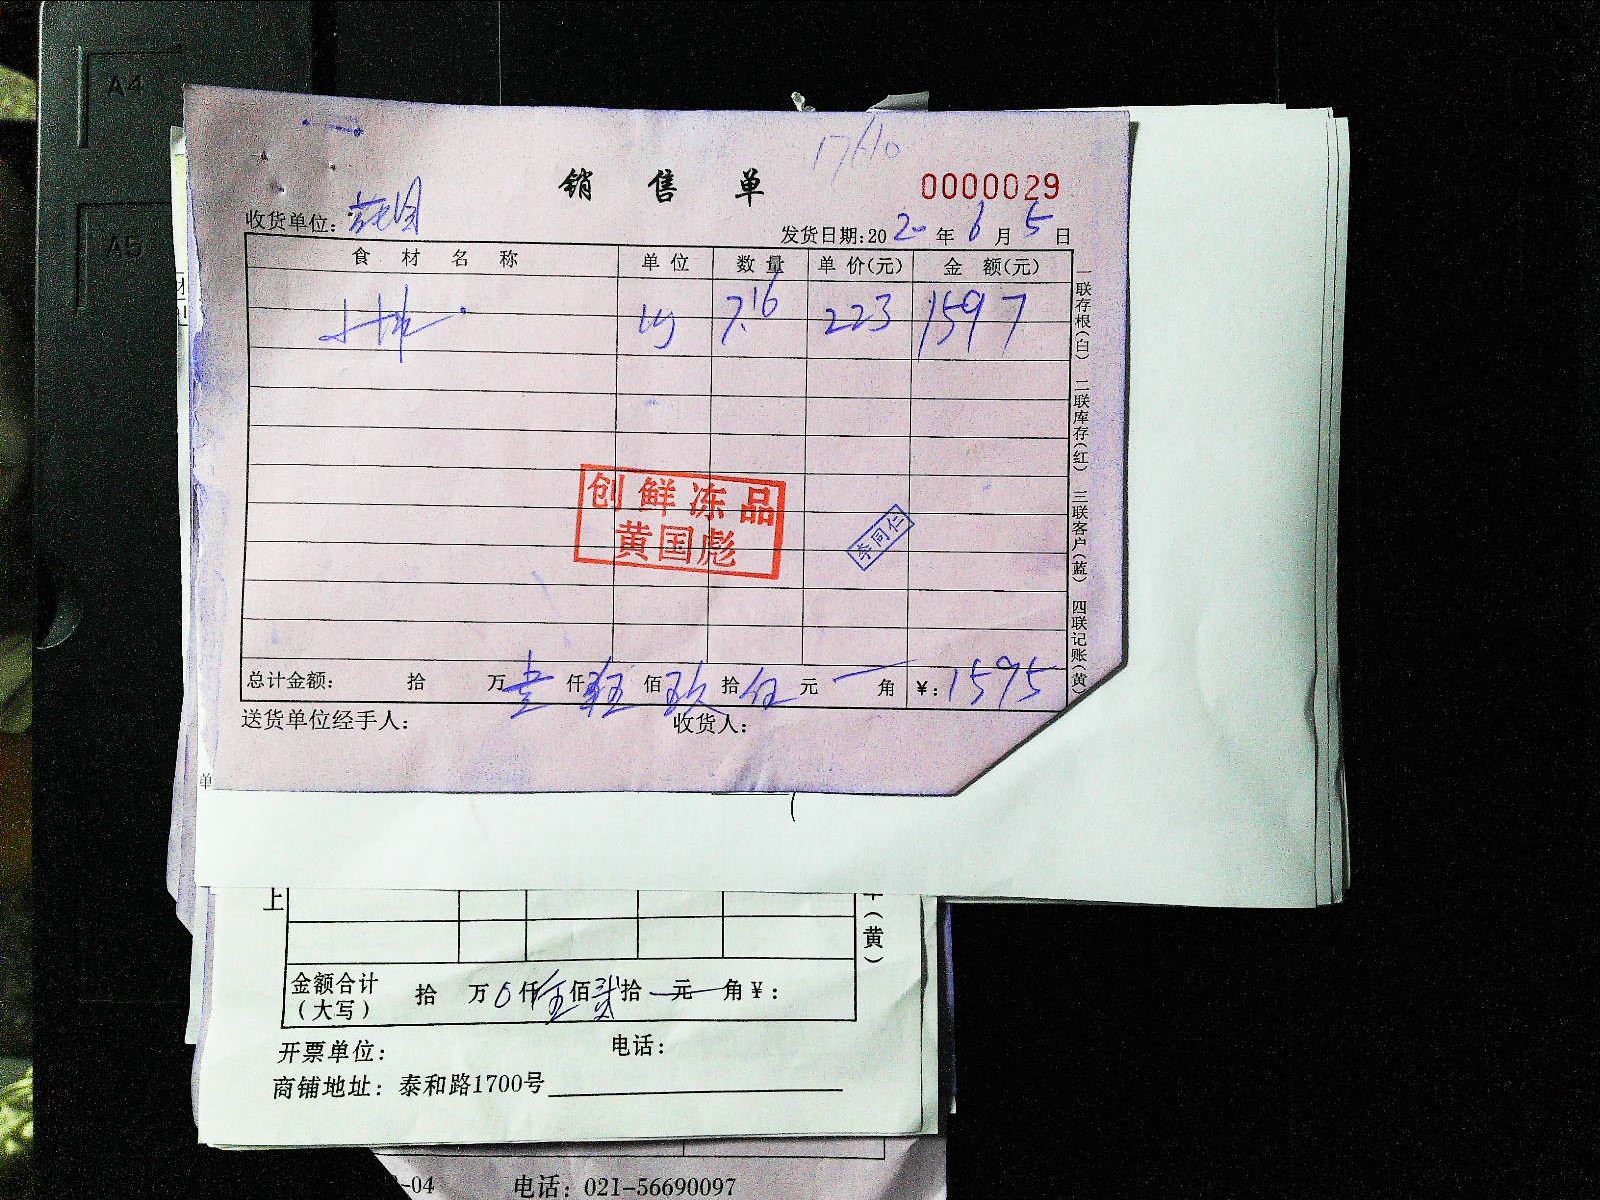 A4
A5
17/10
销售单
0000029
收货单位：
发货日期：2020年6月5日
食材名称 单位 数量 单价(元) 金额(元)
7.16 223 1597
创鲜冻品
黄国彪
李同仁
总计金额： 拾 万壹仟伍佰玖拾伍元一角 ¥：1595
送货单位经手人： 收货人：
一联存根(白) 二联库存(红) 三联客户(蓝) 四联记账(黄)
单
上
(黄)
金额合计
(大写) 拾 万0仟伍佰贰拾一元 角¥：
开票单位： 电话：
商铺地址：泰和路1700号
-04 电话：021-56690097